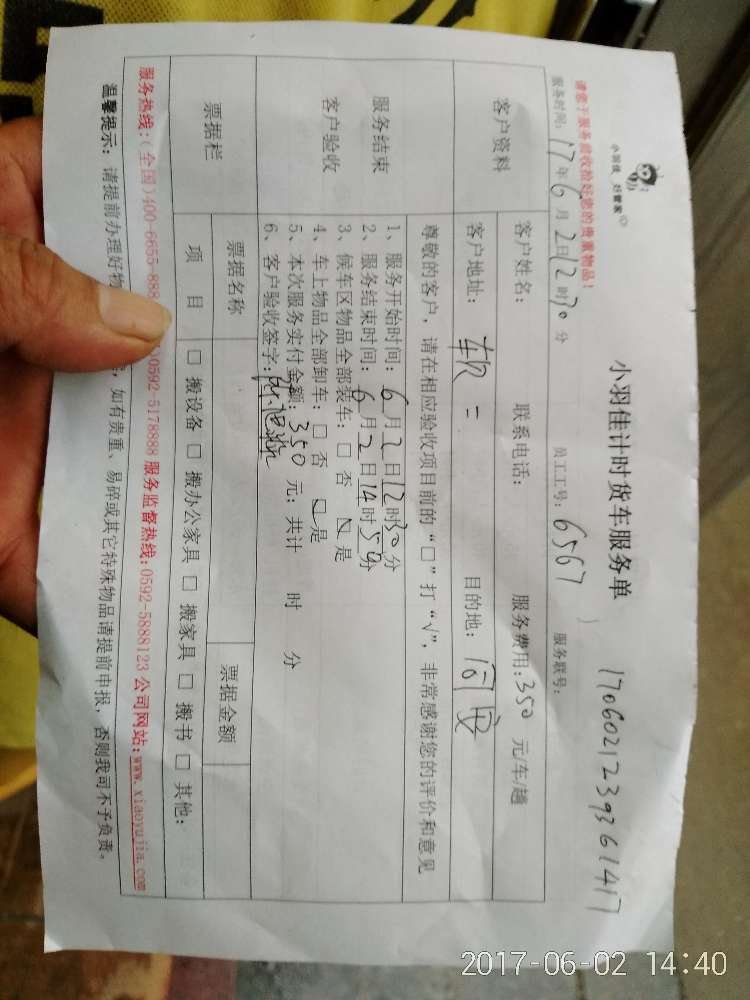 小羽佳 好管家
小羽佳计时货车服务单
1706021239361417
请您于服务前收拾好您的贵重物品!
服务时间: 17年6月2日12时30分 员工工号: 6567 服务联号:
客户资料
客户姓名: 联系电话: 服务费用: 350 元/车/趟
客户地址: 软二 目的地: 同安
服务结束
客户验收
尊敬的客户, 请在相应验收项目前的“□”打“√”, 非常感谢您的评价和意见
1、服务开始时间: 6月2日12时30分
2、服务结束时间: 6月2日14时50分
3、候车区物品全部装车: □ 否 □ 是
4、车上物品全部卸车: □ 否 □ 是
5、本次服务实付金额: 350 元; 共计 时 分
6、客户验收签字:
票据栏
票据名称 票据金额
项 目 □ 搬设备 □ 搬办公家具 □ 搬家具 □ 搬书 □ 其他:
服务热线: (全国)400-6655-888 0592-5178888 服务监督热线: 0592-5888123 公司网站: www.xiaoyujia.com
温馨提示: 请提前办理好物 , 如有贵重、易碎或其它特殊物品请提前申报, 否则我司不予负责。
2017-06-02 14:40